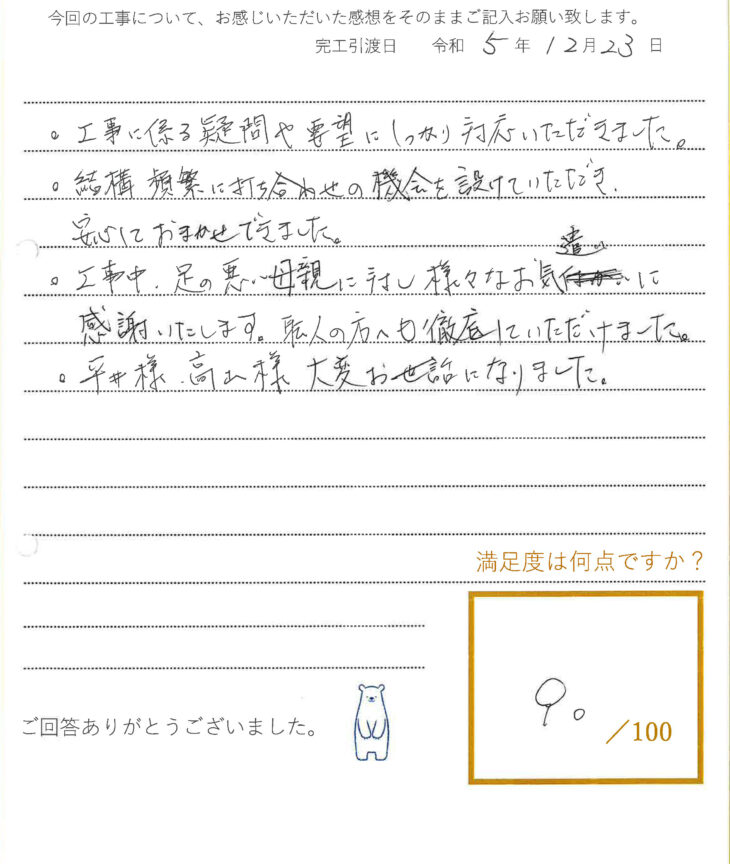 今回の工事について、お感じいただいた感想をそのままご記入お願い致します。
完工引渡日 令和 5 年 12 月 23 日
。工事に係る疑問や要望にしっかり対応いただきました。
。結構頻繁に打ち合わせの機会を設けていただき、
安心しておまかせできました。
。工事中、足の悪い母親に対し様々なお気遣いに
感謝いたします。職人の方へも徹底していただけました。
。平井様、高山様 大変お世話になりました。
満足度は何点ですか？
90 ／100
ご回答ありがとうございました。